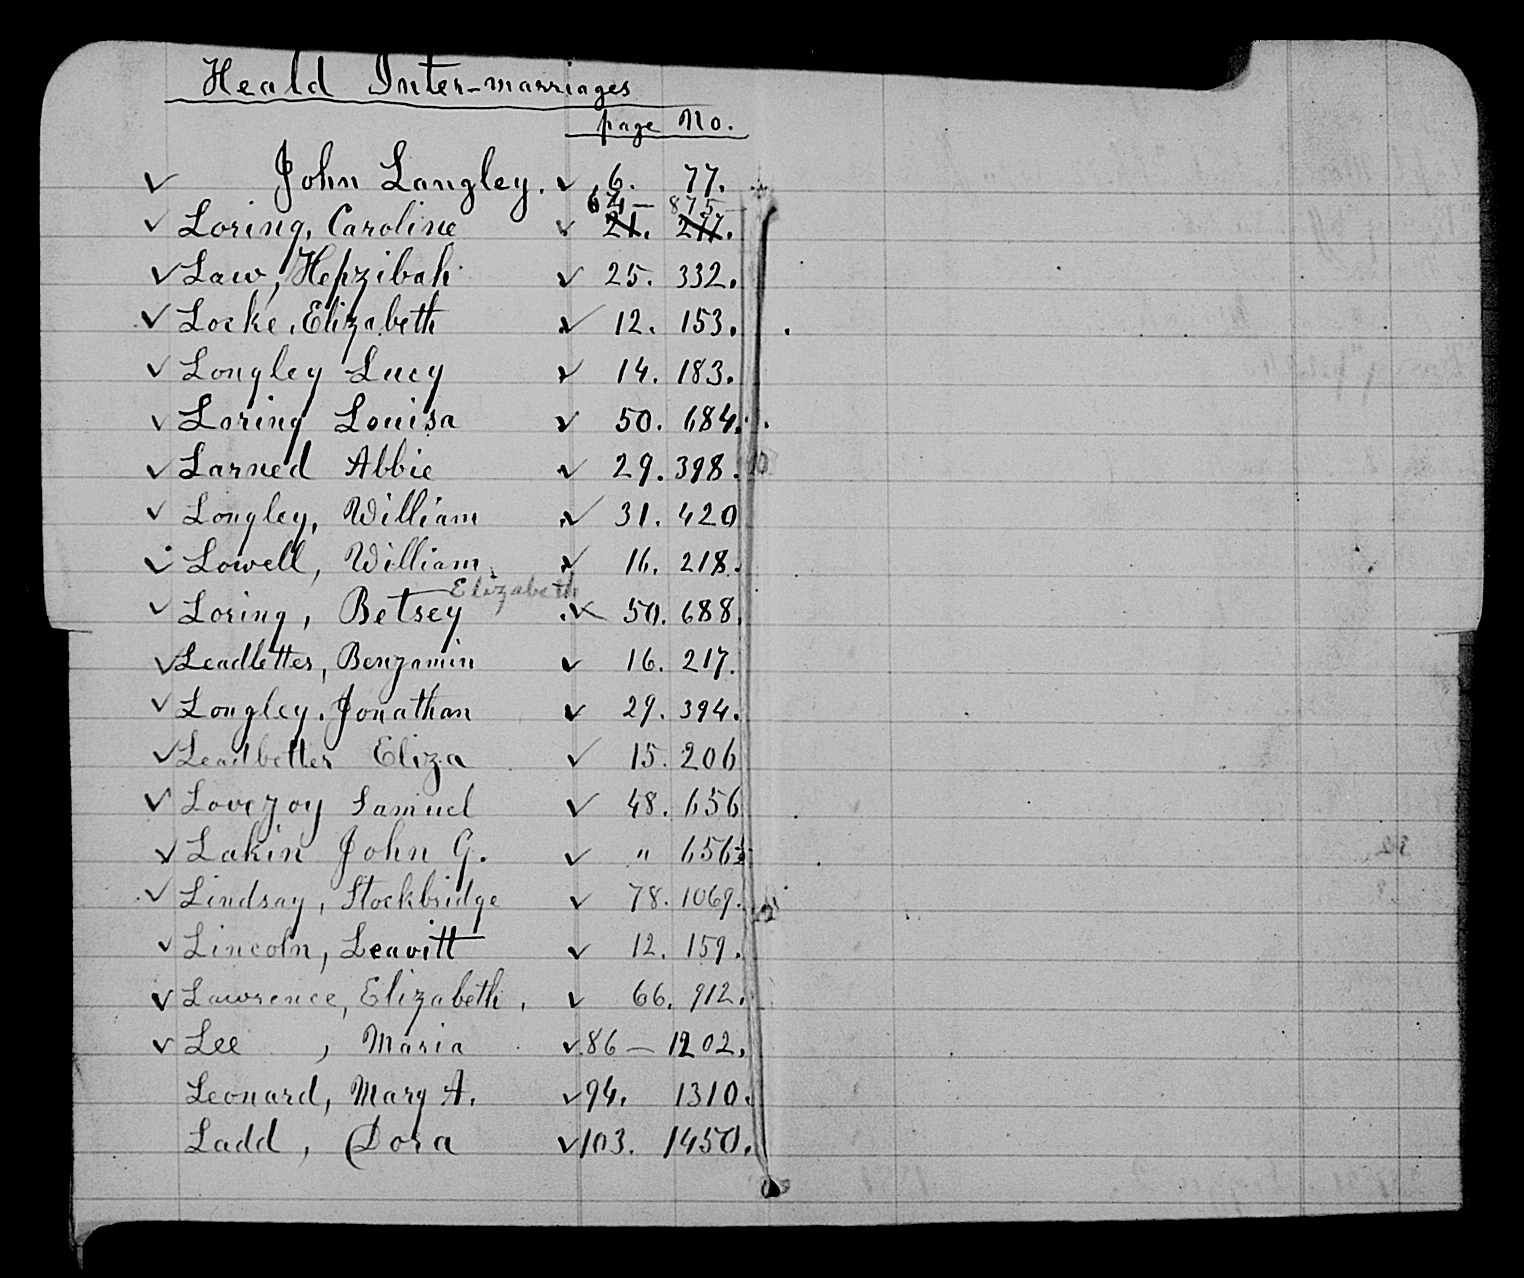 Heald Inter-marriages
page No.
✓ John Langley. ✓ 6. 77.
64 — 875 —
✓ Loring, Caroline ✓ 21. 277.
✓ Law, Hepzibah ✓ 25. 332.
✓ Locke, Elizabeth ✓ 12. 153.
✓ Longley Lucy ✓ 14. 183.
✓ Loring Louisa ✓ 50. 684.
✓ Larned Abbie ✓ 29. 398.
✓ Longley, William ✓ 31. 420
✓ Lowell, William ✓ 16. 218.
Elizabeth
✓ Loring, Betsey ✓ 50. 688.
✓ Leadbetter, Benjamin ✓ 16. 217.
✓ Longley, Jonathan ✓ 29. 394.
✓ Leadbetter Eliza ✓ 15. 206
✓ Lovejoy Samuel ✓ 48. 656
✓ Lakin John G. ✓ " 656½
✓ Lindsay, Stockbridge ✓ 78. 1069.
✓ Lincoln, Leavitt ✓ 12. 159.
✓ Lawrence, Elizabeth. ✓ 66. 912.
✓ Lee , Maria ✓ 86 — 1202.
Leonard, Mary A. ✓ 94. 1310.
Ladd , Dora ✓ 103. 1450.